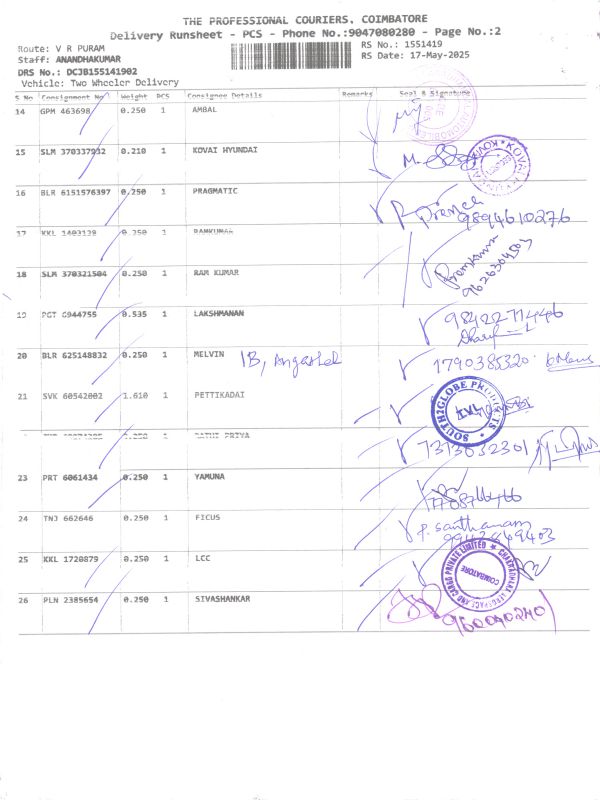 THE PROFESSIONAL COURIERS, COIMBATORE
Delivery Runsheet - PCS - Phone No.:9047080280 - Page No.:2
Route: V R PURAM
RS No.: 1551419
Staff: ANANDHAKUMAR
RS Date: 17-May-2025
DRS No.: DCJB155141902
Vehicle: Two Wheeler Delivery
S No Consignment No Weight PCS Consignee Details Remarks Seal & Signature
14 GPM 463698 0.250 1 AMBAL
15 SLM 370337932 0.210 1 KOVAI HYUNDAI
16 BLR 6151576397 0.250 1 PRAGMATIC
9894610276
17 KKL 1403138 0.250 1 RAMKUMAR
18 SLM 370321504 0.250 1 RAM KUMAR
9626304503
19 PGT 6944755 0.535 1 LAKSHMANAN
9842271446
20 BLR 625148832 0.250 1 MELVIN IB,
1790385320
21 SVK 60542002 1.610 1 PETTIKADAI
SOUTH2GLOBE PRODUCTS
7373032301
23 PRT 6061434 0.250 1 YAMUNA
24 TNJ 662646 0.250 1 FICUS
P. Santhanam
25 KKL 1720879 0.250 1 LCC
COIMBATORE
26 PLN 2385654 0.250 1 SIVASHANKAR